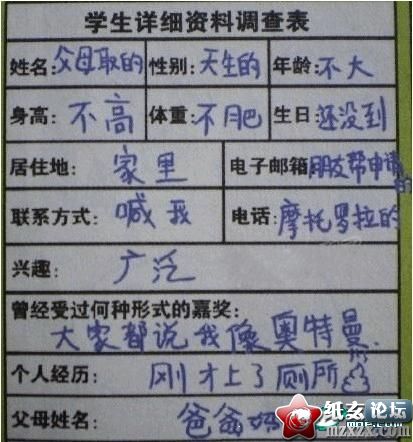 学生详细资料调查表
姓名:父母取的 性别:天生的 年龄:不大
身高:不高 体重:不肥 生日:还没到
居住地:家里 电子邮箱朋友帮申请的
联系方式:喊我 电话:摩托罗拉的
兴趣:广泛
曾经受过何种形式的嘉奖:
大家都说我像奥特曼
个人经历:刚才上了厕所
父母姓名:爸爸妈
纸玄论坛
mzxzx.com